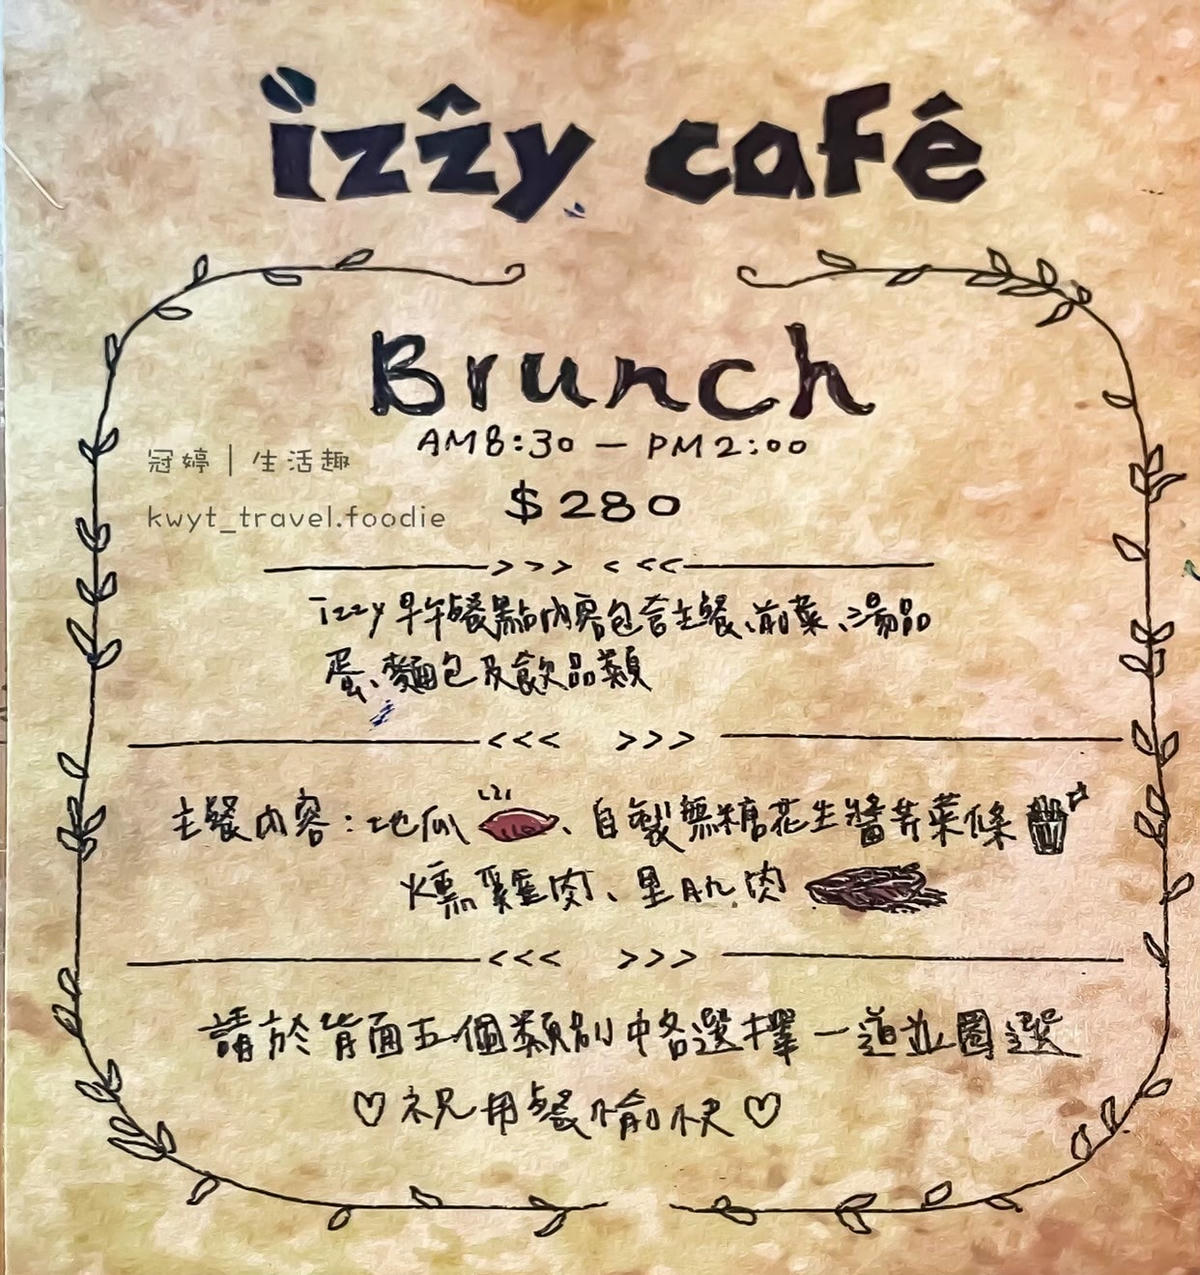 izzy café
Brunch
AM8:30 — PM2:00
冠婷｜生活趣
$280
kwyt_travel.foodie
izzy早午餐點內容包含主餐、前菜、湯品
蛋、麵包及飲品類
主餐內容：地瓜、自製無糖花生醬薯條
燻雞肉、里肌肉
請於背面五個類別中各選擇一道並圈選
♡祝用餐愉快♡